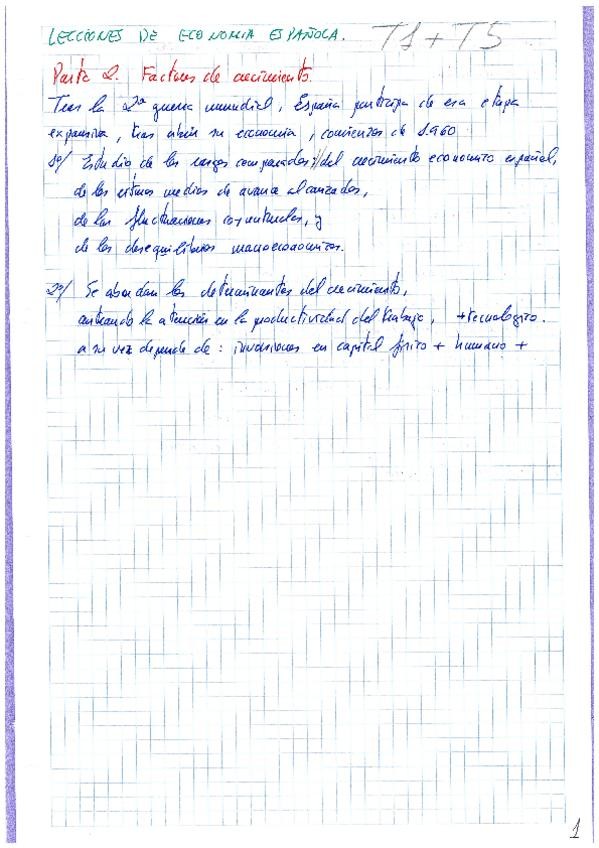 LECCIONES DE ECONOMIA ESPAÑOLA. T1 + T5
Parte 2. Factores de crecimiento.
Tras la 2ª guerra mundial, España participa de esa etapa
expansiva, tras abrir su economía, comienzos de 1.960
1º/ Estudio de los rasgos comparados del crecimiento economico español,
de los ritmos medios de avance alcanzados,
de las fluctuaciones coyunturales, y
de los desequilibrios macroeconomicos.
2º/ Se abordan los determinantes del crecimiento,
centrando la atención en la productividad del trabajo,
+tecnologico.
a su vez depende de: inversiones en capital fisico + humano +
1